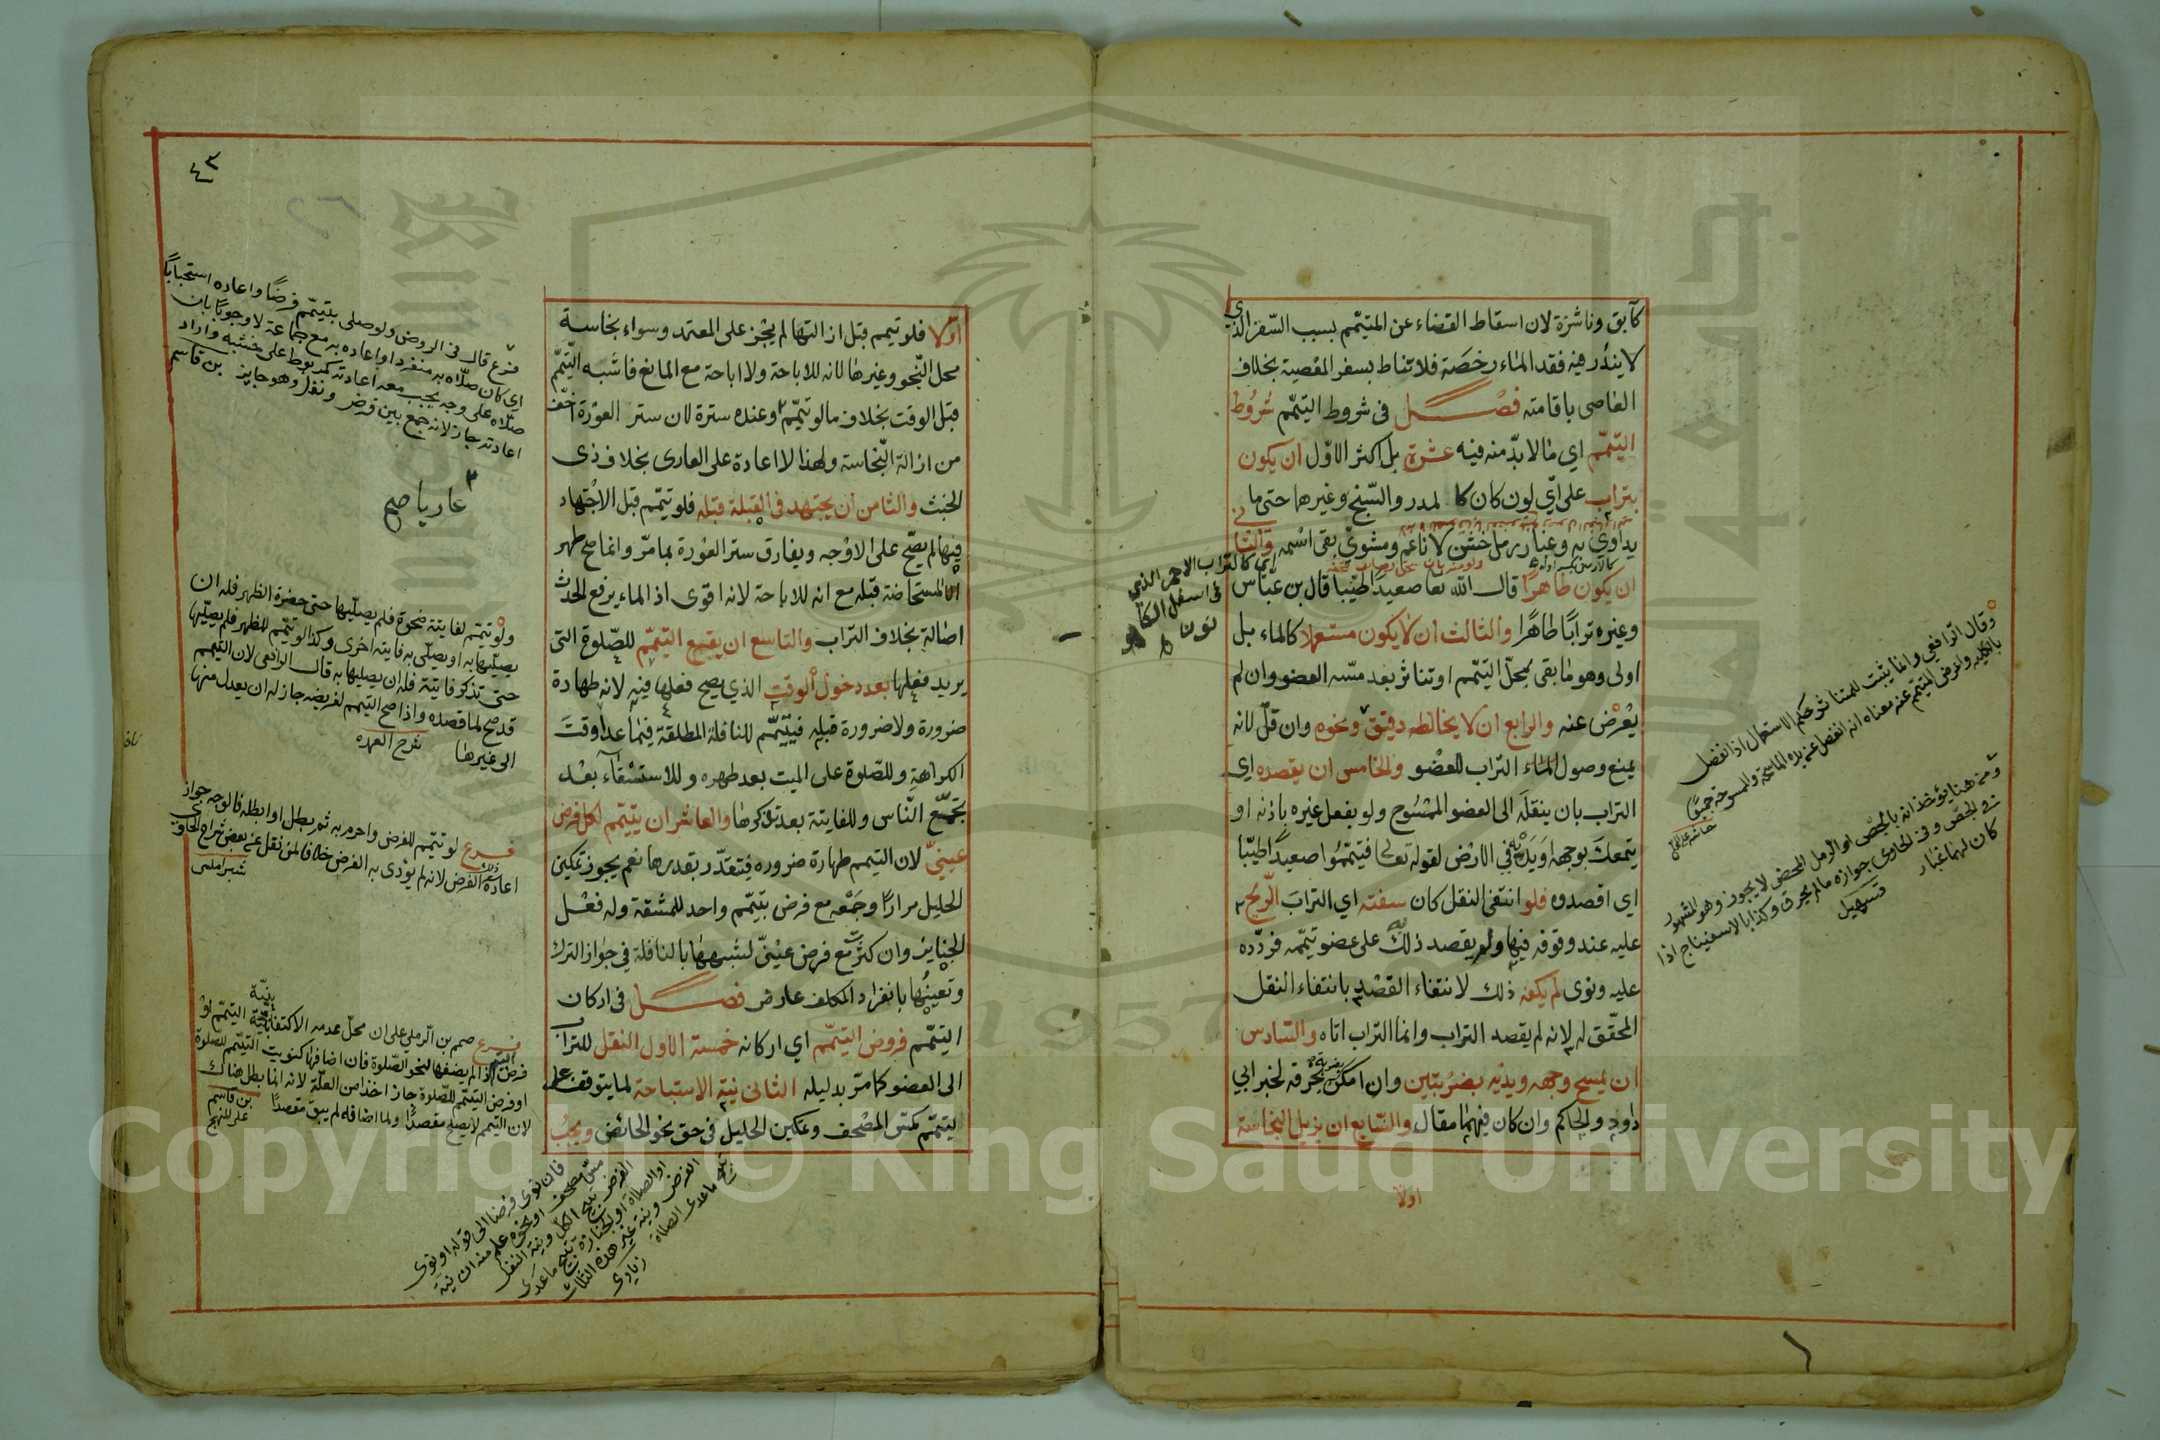 كآبق وناشزة لان اسقاط القضاء عن المتيمّم بسبب السّفر الذي
لا يندر فيه فقد الماء رخصة فلا تناط بسفر المعصية بخلاف
العاصى باقامته فصل فى شروط التيمّم شروط
التيمّم اي مالا بدّ منه فيه عشرة بل اكثر الاوّل ان يكون
بتراب على أيّ لون كان كالمدر والسّبخ وغيرها حتى ما
يداوى به وغبار رمل خشن لا ناعم ومشويّ بقى اسمه والثانى
ان يكون طاهرا قال الله تعا صعيدا طيّبا قال بن عبّاس
وغيره ترابًا طاهرًا والثالث ان لا يكون مستعملا كالماء بل
اولى وهو ما بقى بمحلّ التيمّم او تناثر بعد مسّه العضو وان لم
يُعرض عنه والرابع ان لا يخالطه دقيق ونحوه وان قلّ لانه
يمنع وصول التراب للعضو والخامس ان يقصده اى
التراب بان ينقله الى العضو الممسُوح ولو بفعل غيره باذنه او
يتمعك بوجهه ويديه في الارض لقوله تعالى فتيمّمُوا صعيدًا طيّبًا
اى اقصدوه فلو انتفى النقل كان سفته اي التراب الرّيح
عليه عند وقوفه فيها ولم يقصد ذلك على عضو تيمّمه فردّده
عليه ونوى لم يكفه ذلك لانتفاء القصد بانتفاء النقل
المحقّق له لانه لم يقصد التراب وانما التراب اتاه والسّادس
ان يمسح وجهه ويديه بضربتين وان امكن بخرقة لخبر ابي
داود والحاكم وان كان فيهما مقال والسّابع ان يزيل النجاسة
اولا
اي كالتراب الاحمر الذي
فى اسفل
وقال الرافعي وانما يثبت للمتناثر حكم الاستعمال اذا انفصل
بالكلية واعرض المتيمّم عنه معناه انه انفصل عن يده الماسحة والممسوحة جميعًا
ومن هنا يؤخذ انه بالجصّ او الرمل المحض لا يجوز وهو المشهور
كان لهما غبار تسهيل
٤٣
اوّلا فلو تيمم قبل ازالتها لم يجز على المعتمد وسواء نجاسة
محل النّجو وغيرها لانه للاباحة ولا اباحة مع المانع فاشبه التّيمّم
قبل الوقت بخلاف ما لو تيمّم وعنده سترة لان ستر العورة اخفّ
من ازالة النّجاسة ولهذا لا اعادة على العارى بخلاف ذى
الخبث والثامن ان يجتهد فى القبلة قبله فلو تيمّم قبل الاجتهاد
فيها لم يصحّ على الاوجه ويفارق ستر العورة بما مرّ وانما صح طهر
المستحاضة قبله مع انه للاباحة لانه اقوى اذ الماء يرفع الحدث
اصالة بخلاف التراب والتاسع ان يقع التيمّم للصّلوة التى
يريد فعلها بعد دخول الوقت الذي يصح فعلها فيه لانه طهارة
ضرورة ولا ضرورة قبله فيتيمّم للنافلة المطلقة فيما عدا وقت
الكراهة وللصّلوة على الميت بعد طهره وللاستسقاء بعد
تجمّع النّاس وللفايتة بعد تذكرها والعاشر ان يتيمم لكل فرض
عينيّ لان التيمم طهارة ضرورة فتتقدّر بقدرها نعم يجوز تمكين
الحليل مرارًا وجمعه مع فرض بتيمّم واحد للمشقة وله فعل
الجنايز وان كثرت مع فرض عينيّ لشبهها بالنافلة في جواز الترك
وتعينُها بانفراد المكلف عارض فصل فى اركان
التيمّم فروض التيمّم اي اركانه خمسة الاول النقل للتراب
الى العضو كما مرّ بدليله الثانى نية الاستباحة لما يتوقف على
التيمّم كمسّ المصحف وتمكين الحليل فى حق نحو الحائض ويجب
فرع قال فى الروض ولو صلى بتيمّم فرضًا واعاده استحبابًا
اي كان صلّاه به منفردا واعاده به مع جماعة لا وجوبًا بان
صلّاه على وجه يجب معه اعادته كمربوط على خشبة واراد
اعادته جاز لانه جمع بين فرض ونفل وهو جايز بن قاسم
عاريا صح
ولو تيمّم لفايتة ضحوة فلم يصلّيها حتى حضرة الظهر فله ان
يصلّيها به او يصلّى به فايتة اخرى وكذا لو تيمّم للظهر فلم يصلّيها
حتى تذكر فايتة فله ان يصليها به قال الرافعى لان التيمم
قد صح لما قصده واذا صح التيمم لفريضة جاز له ان يعدل منها
الى غيرها شرح العمده
فرع لو تيمّم للفرض واحرم به ثم بطل او ابطله فالوجه جواز
اعادة الفرض لانه لم يؤدى به الفرض خلافا لمن نقل عن بعض شراح الحاوى
شبراملسى
فرع صمم بن الرّملى على ان محلّ عدمه الاكتفاء بنيّة التيمّم او
فرض التيمم اذا لم يضفها لنحو الصّلوة فان اضافها كنويت التيمّم للصلوة
او فرض التيمّم للصّلوة جاز اخذا من العلّة لانه انما بطل هناك
لان التيمم لا يصلح مقصدًا ولما اضافه لم يبق مقصدًا بن قاسم
على المنهج
فان نوى فرضا الى قوله او نوى
مسّ مصحف او نحوه علم منه ان نية
الفرض تبيح الكلّ ونية النفل
او الصلاة او الجنازة تبيح ما عدى
الفرض ونية غير هذه الثلاث
تبيح ما عدى الصلاة زيادى
Copyright © King Saud University
1957